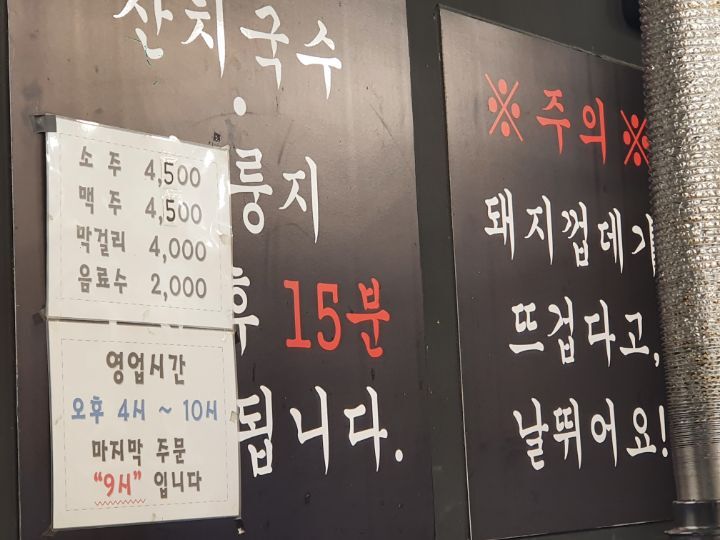 잔치국수
•
룽지
후 15분
됩니다.
소주 4,500
맥주 4,500
막걸리 4,000
음료수 2,000
영업시간
오후 4시 ~ 10시
마지막 주문
“9시” 입니다
※ 주의 ※
돼지껍데기
뜨겁다고,
날뛰어요!